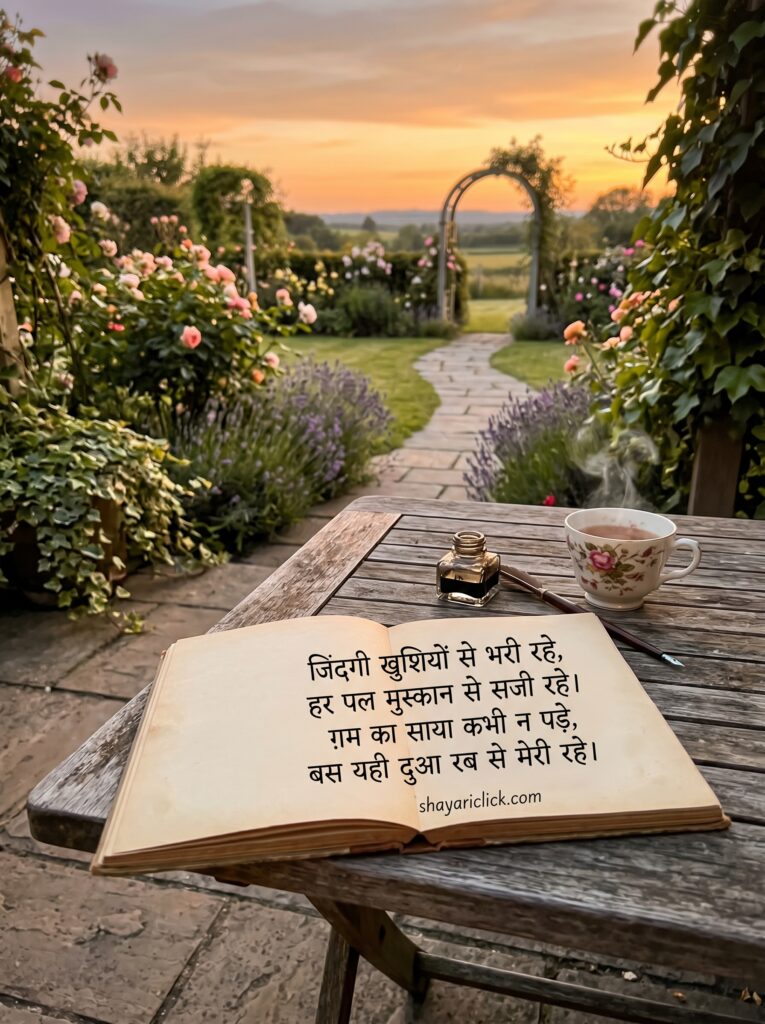 जिंदगी खुशियों से भरी रहे,
हर पल मुस्कान से सजी रहे।
ग़म का साया कभी न पड़े,
बस यही दुआ रब से मेरी रहे।
shayariclick.com